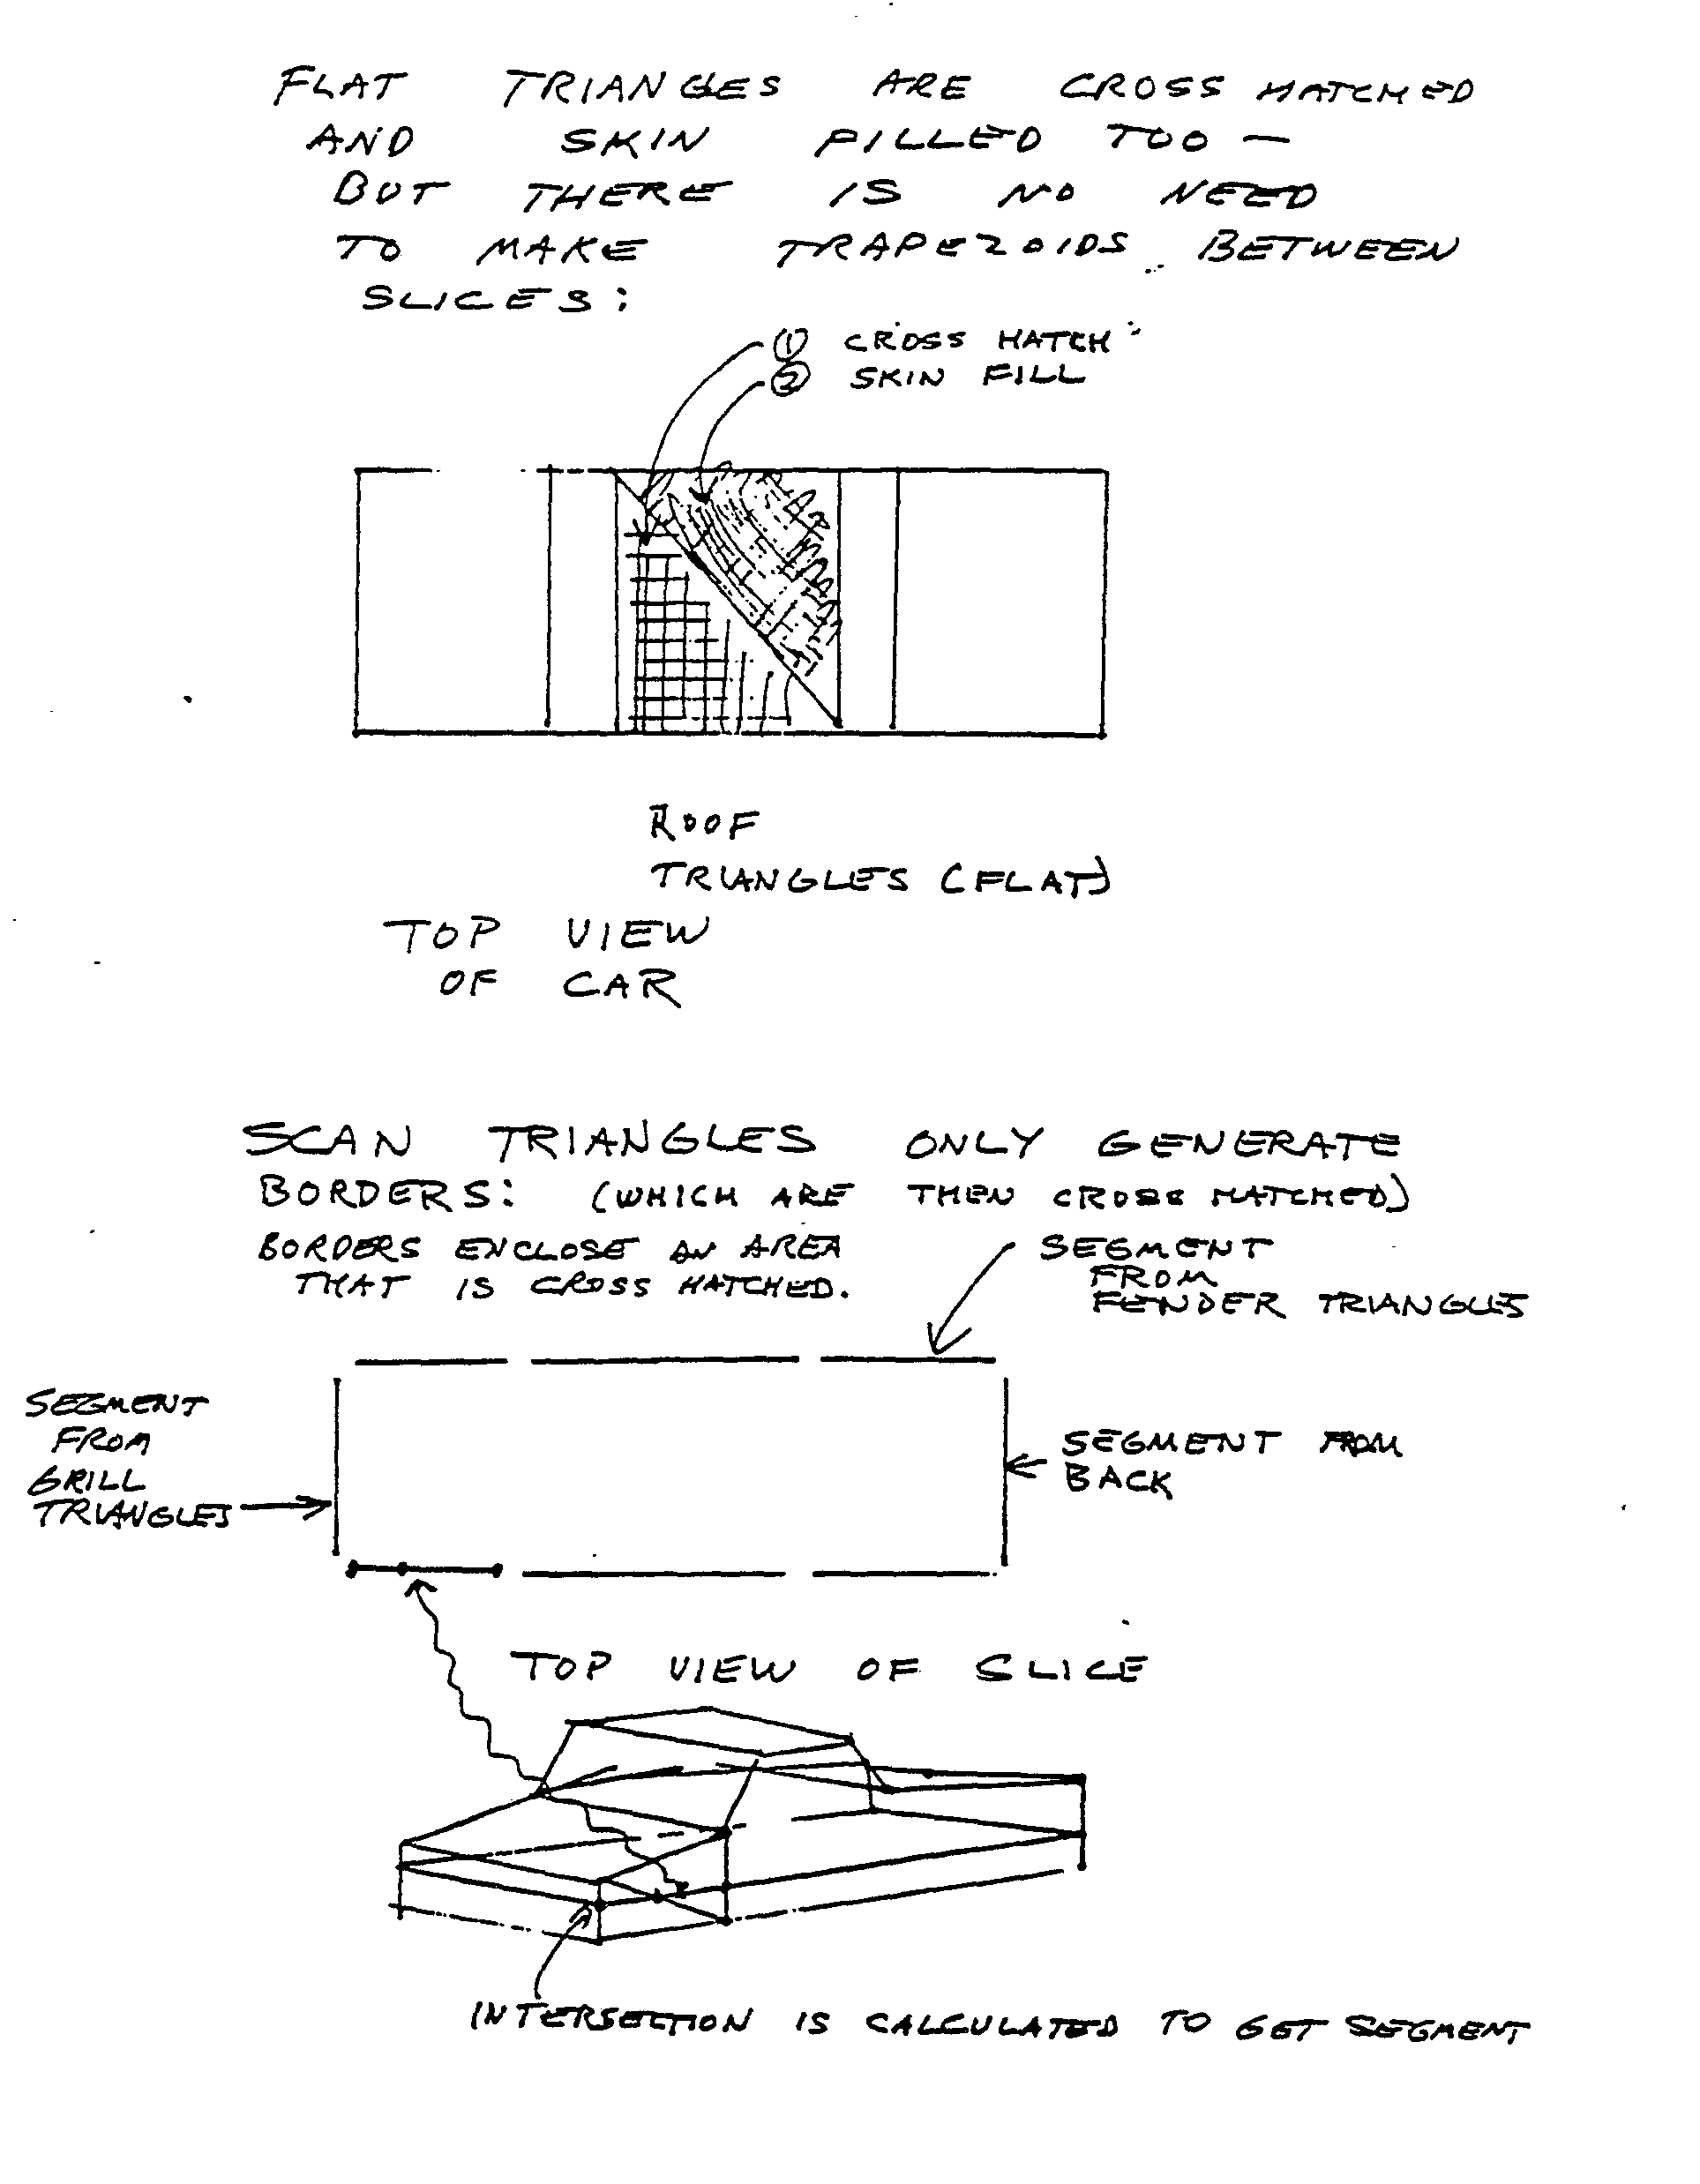 FLAT TRIANGLES ARE CROSS HATCHED
AND SKIN FILLED TOO —
BUT THERE IS NO NEED
TO MAKE TRAPEZOIDS BETWEEN
SLICES:
① CROSS HATCH
② SKIN FILL
ROOF
TRIANGLES (FLAT)
TOP VIEW
OF CAR
SCAN TRIANGLES ONLY GENERATE
BORDERS: (WHICH ARE THEN CROSS HATCHED)
BORDERS ENCLOSE AN AREA
THAT IS CROSS HATCHED.
SEGMENT
FROM
FENDER TRIANGLES
SEGMENT
FROM
GRILL
TRIANGLES
SEGMENT FROM
BACK
TOP VIEW OF SLICE
INTERSECTION IS CALCULATED TO GET SEGMENT